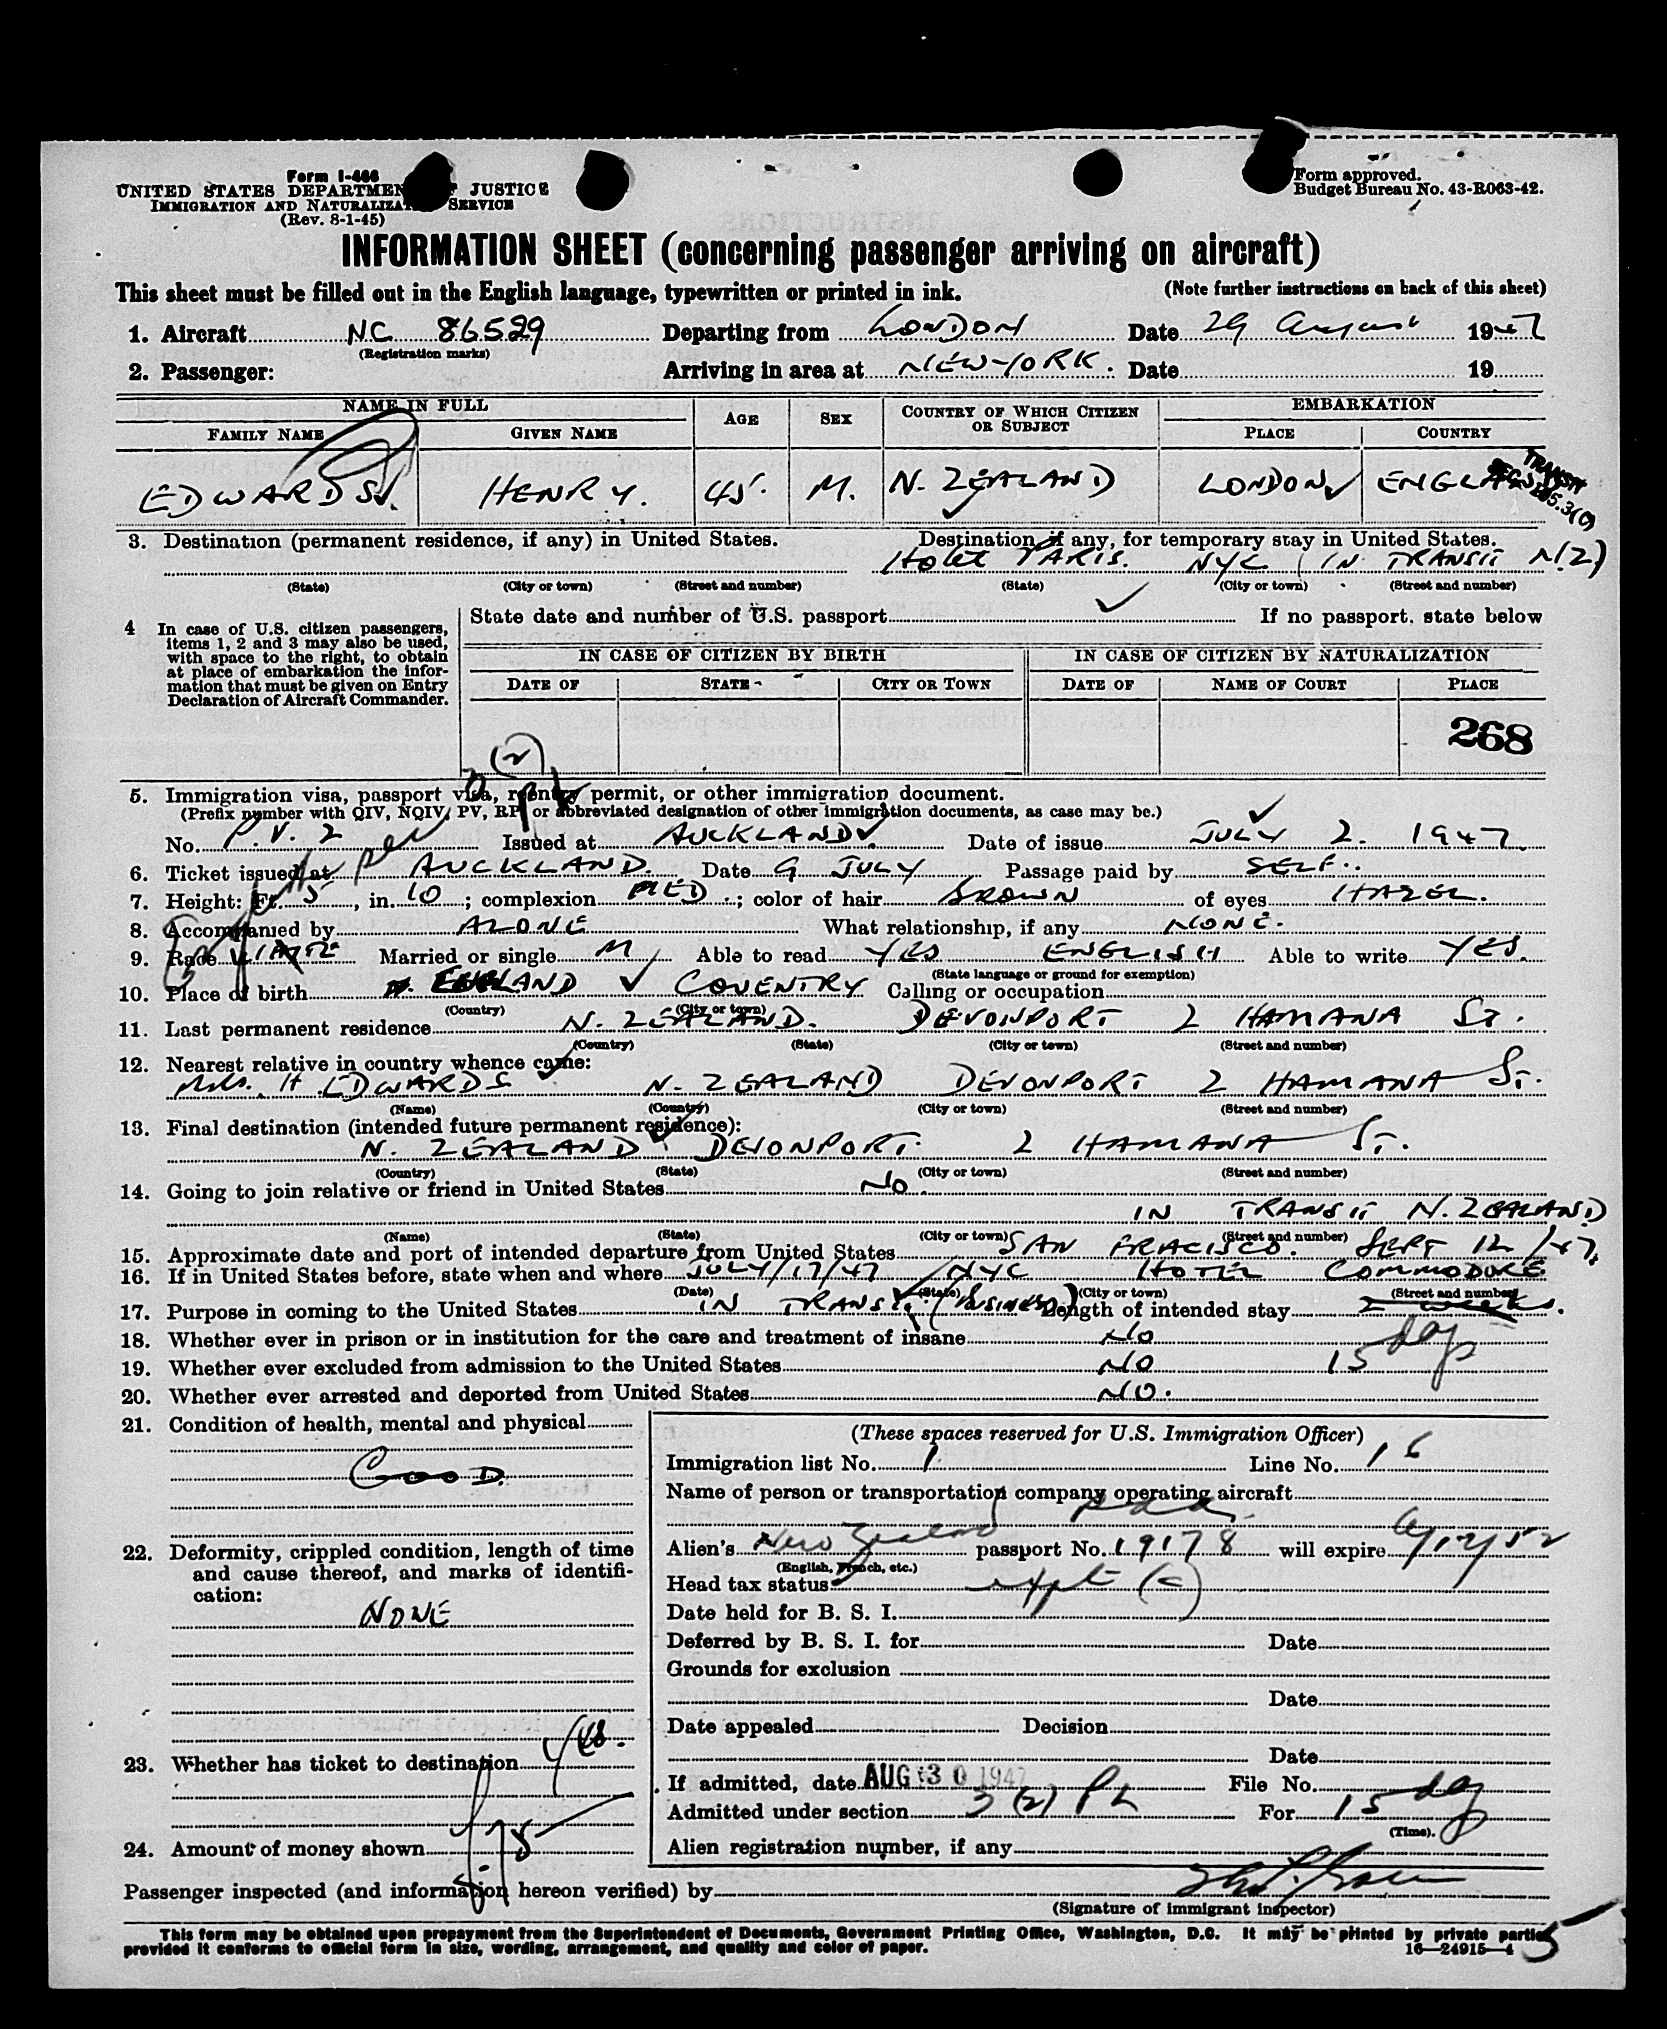 Form I-466
UNITED STATES DEPARTMENT OF JUSTICE
IMMIGRATION AND NATURALIZATION SERVICE
(Rev. 8-1-45)
Form approved.
Budget Bureau No. 43-R063-42.
INFORMATION SHEET (concerning passenger arriving on aircraft)
This sheet must be filled out in the English language, typewritten or printed in ink. (Note further instructions on back of this sheet)
1. Aircraft NC 86529 Departing from LONDON Date 29 August 1947
(Registration marks)
2. Passenger: Arriving in area at NEW-YORK. Date 19
NAME IN FULL AGE SEX COUNTRY OF WHICH CITIZEN OR SUBJECT EMBARKATION
FAMILY NAME GIVEN NAME PLACE COUNTRY
EDWARDS. HENRY. 45. M. N. ZEALAND LONDON ENGLAND
TRANSIT
3. Destination (permanent residence, if any) in United States. Destination if any, for temporary stay in United States.
Hotel PARIS. NYC (IN TRANSIT N.Z)
(State) (City or town) (Street and number) (State) (City or town) (Street and number)
4 In case of U.S. citizen passengers, items 1, 2 and 3 may also be used, with space to the right, to obtain at place of embarkation the information that must be given on Entry Declaration of Aircraft Commander.
State date and number of U.S. passport If no passport, state below
IN CASE OF CITIZEN BY BIRTH IN CASE OF CITIZEN BY NATURALIZATION
DATE OF STATE CITY OR TOWN DATE OF NAME OF COURT PLACE
268
5. Immigration visa, passport visa, reentry permit, or other immigration document.
(Prefix number with QIV, NQIV, PV, RP, or abbreviated designation of other immigration documents, as case may be.)
No. P.V. 2 Issued at AUCKLAND. Date of issue JULY 2. 1947.
6. Ticket issued at AUCKLAND. Date 9 JULY Passage paid by SELF.
7. Height: Ft. 5, in. 10; complexion MED.; color of hair BROWN of eyes HAZEL.
8. Accompanied by ALONE What relationship, if any NONE.
9. Race WHITE Married or single M Able to read YES ENGLISH Able to write YES.
(State language or ground for exemption)
10. Place of birth ENGLAND COVENTRY Calling or occupation
(Country) (City or town)
11. Last permanent residence N. ZEALAND. DEVONPORT 2 HAMANA ST.
(Country) (State) (City or town) (Street and number)
12. Nearest relative in country whence came:
MRS. H. EDWARDS N. ZEALAND DEVONPORT 2 HAMANA ST.
(Name) (Country) (City or town) (Street and number)
13. Final destination (intended future permanent residence):
N. ZEALAND DEVONPORT. 2 HAMANA ST.
(Country) (State) (City or town) (Street and number)
14. Going to join relative or friend in United States No.
IN TRANSIT N. ZEALAND
(Name) (State) (City or town) (Street and number)
15. Approximate date and port of intended departure from United States SAN FRACISCO. SEPT 12/47.
16. If in United States before, state when and where JULY/17/47 NYC HOTEL COMMODORE
(Date) (State) (City or town) (Street and number)
17. Purpose in coming to the United States IN TRANSIT (BUSINESS) Length of intended stay 2 weeks.
15 days
18. Whether ever in prison or in institution for the care and treatment of insane No
19. Whether ever excluded from admission to the United States NO
20. Whether ever arrested and deported from United States NO.
21. Condition of health, mental and physical
GOOD.
22. Deformity, crippled condition, length of time and cause thereof, and marks of identification:
NONE
23. Whether has ticket to destination yes.
24. Amount of money shown $75
(These spaces reserved for U.S. Immigration Officer)
Immigration list No. 1 Line No. 16
Name of person or transportation company operating aircraft
Alien's New Zealand passport No. 19178 will expire
(English, French, etc.)
Head tax status
Date held for B. S. I.
Deferred by B. S. I. for Date
Grounds for exclusion
Date
Date appealed Decision
Date
If admitted, date AUG 30 1947 File No.
Admitted under section 3 (2) For 15 days
(Time).
Alien registration number, if any
Passenger inspected (and information hereon verified) by
(Signature of immigrant inspector)
This form may be obtained upon prepayment from the Superintendent of Documents, Government Printing Office, Washington, D.C. It may be printed by private parties
provided it conforms to official form in size, wording, arrangement, and quality and color of paper. 16—24915-4
5